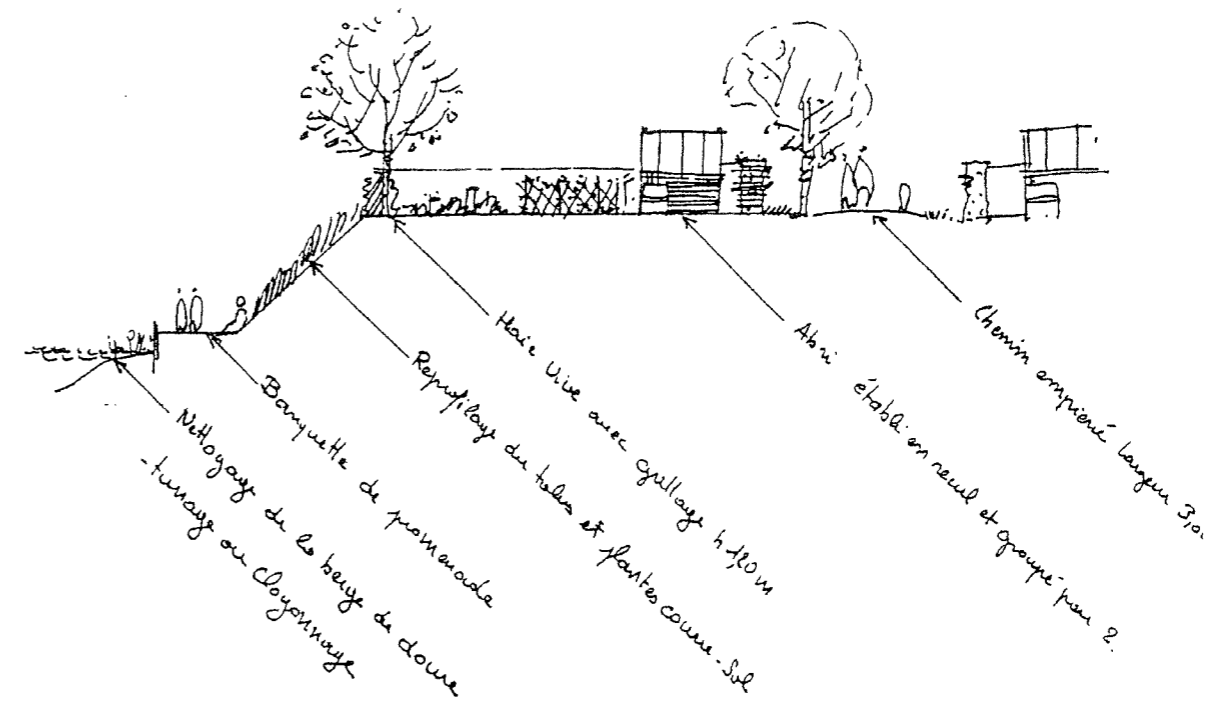 Nettoyage de la berge de douve
- tunage ou clayonnage
Banquette de promenade
Reprofilage du talus et plantes couvre-sol
Haie vive avec grillage h 1,20 m
Abri établi en recul et groupé par 2.
Chemin empierré largeur 3,0